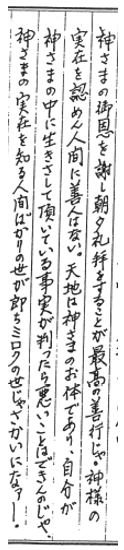 神さまの御恩を謝し朝夕礼拝をすることが最高の善行じゃ。神様の
実在を認めん人間に善人はない。天地は神さまのお体であり、自分が
神さまの中に生きさして頂いている事実が判ったら悪いことはできんのじゃ、
神さまの実在を知る人間ばかりの世が即ちミロクの世じゃさかいになァー。